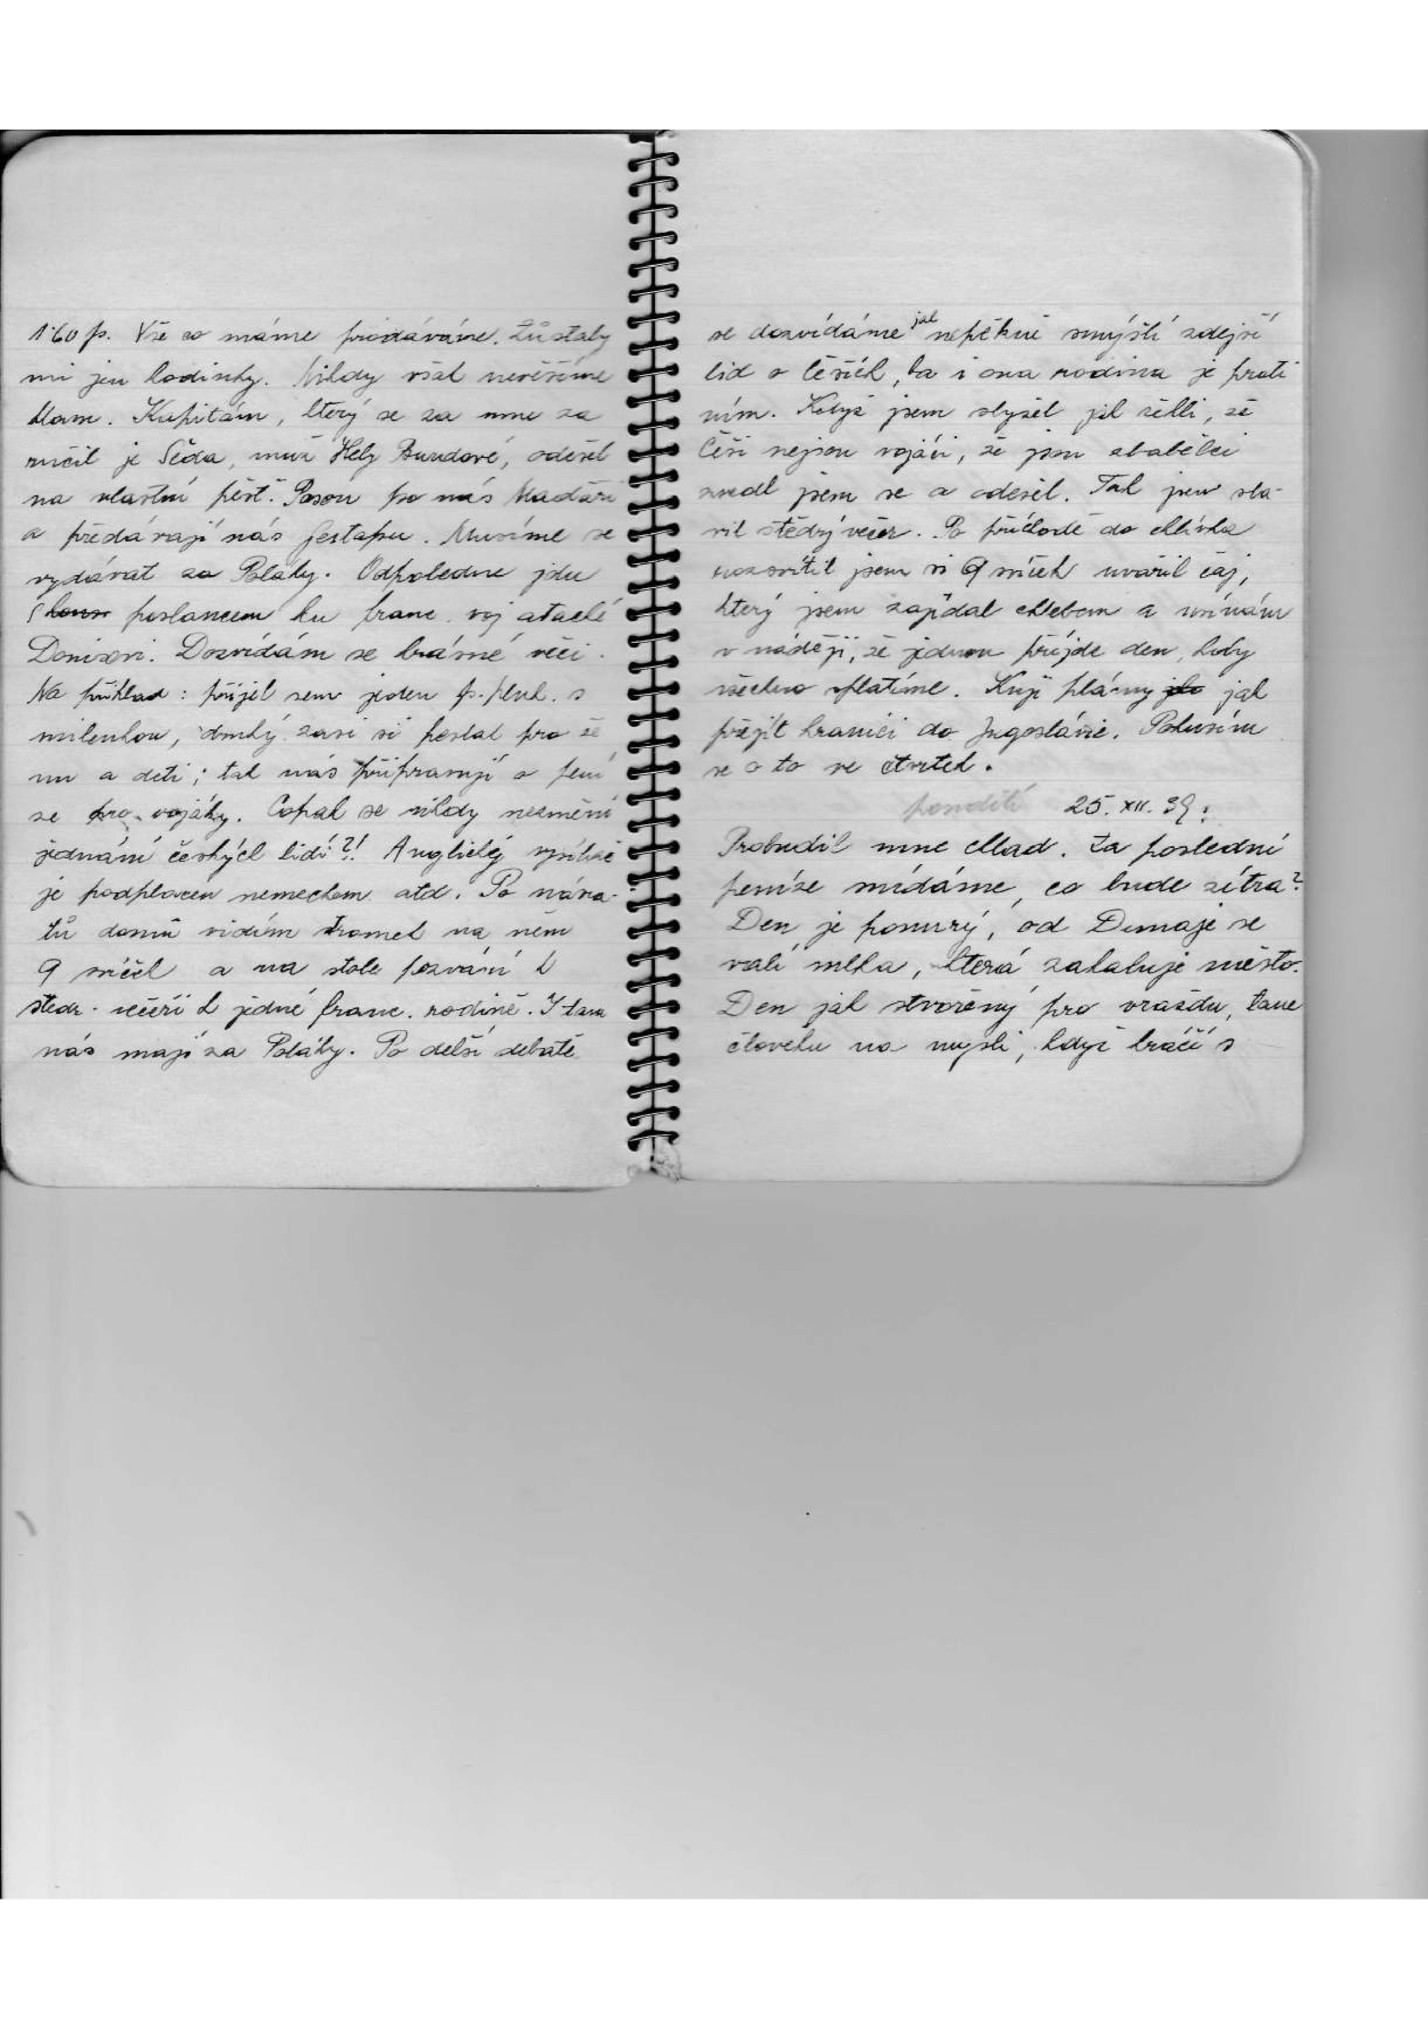 1·60 p. Vše co máme prodáváme. Zůstaly
mi jen hodinky. Nikdy však nevěšíme
hlav. Kapitán, který se za mne za
ručil je Šeda, muž Hely Burdové, odešel
na vlastní pěst. Pasou po nás Maďaři
a předávají nás gestapu. Musíme se
vydávat za Poláky. Odpoledne jdu
s poslancem ku franc. voj ataché
Denisovi. Dozvídám se krásné věci.
Na příklad: přijel sem jeden p. pluk. s
milenkou, druhý zasi si poslal pro že
nu a deti; tak nás připravují o pení
ze pro vojáky. Copak se nikdy nezmění
jednání českých lidí?! Anglický vysílač
je podplacen nemeckem atd. Po návra-
tů domů vidím stromek na něm
9 svíček a na stole pozvání k
stedr. večeři k jedné franc. rodině. I tam
nás mají za Poláky. Po delší debatě
se dozvídáme jak nepěkně smýšlí zdejší
lid o Češích, ba i ona rodina je proti
ním. Když jsem slyšel jak řekli, že
Češi nejsou vojáci, že jsou zbabělci
zvedl jsem se a odešel. Tak jsem sla-
vil štědrý večer. Po příchodě do chlívka
rozsvítil jsem si 9 svíček uvařil čaj,
který jsem zajídal chlebem a usínám
v náději, že jednou přijde den, kdy
všechno splatíme. Kuji plány jak
přejít hranici do Jugoslávie. Pokusím
se o to ve čtvrtek.
pondělí 25. XII. 39.
Probudil mne chlad. Za poslední
peníze snídáme, co bude zítra?
Den je ponurý, od Dunaje se
valí mlha, která zahaluje město.
Den jak stvořený pro vraždu, tane
človeku na mysli, když kráčí s